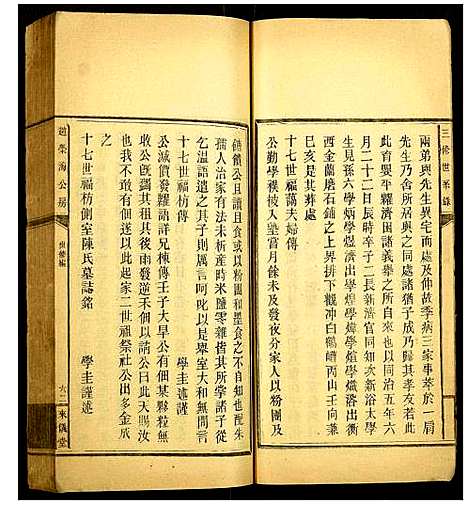 三修世系錄
兩弟與先生異宅而處及仲故季病三家事萃於一肩
先生乃舍所居與之同處諸猶子成乃歸其孝友若此
此育嬰平糶濟困諸義舉之所自來也同治五年六
月二十二日辰時卒子二長新濟官同知次新浴太學
生見孫六學炳學煜濟出學煌學煒學煊學熾浴出衝
西金蘭磨石鋪之上界排下觀沖白鶴嶂丙山壬向兼
巳亥是其葬處
十七世福蕩夫婦傳
公勤學穫被人望嘗月餘未及發夜分家人以粉團及
饋公且讀且食或以粉團和墨食之不自知也配朱
孺人治家有法未析產時米鹽零雜皆其所掌諸子從
乞溫語遣之其子屬言呵叱以是舉室大和無間言
學圭謹述
十七世福枋傳
公減價發糶語詳兄棟傳壬子大旱公有佃某穀獨有
收公既蠲其租其後雨發逆未佃以請公曰此天賜汝
也我不與也以此起家二世祖祭社公出多金成
學圭謹述
十七世福枋側室陳氏墓誌銘
趙榮海公房
六二
來儀堂